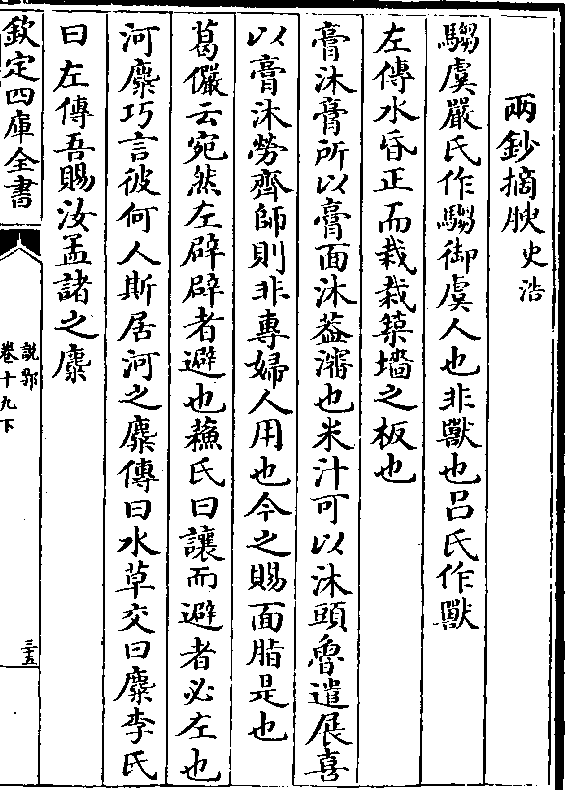 兩鈔摘腴史浩
騶虞嚴氏作騶御虞人也非獸也呂氏作獸
左傳水昏正而栽栽築墻之板也
膏沐膏所以膏面沐葢瀋也米汁可以沐頭魯遣展喜
以膏沐勞齊師則非專婦人用也今之賜面脂是也
葛儼云宛然左辟辟者避也蘓氏曰讓而避者必左也
河麋巧言彼何人斯居河之麋傳曰水草交曰麋李氏
曰左傳吾賜汝孟諸之麋
欽定四庫全書
說郛
卷十九下
三五